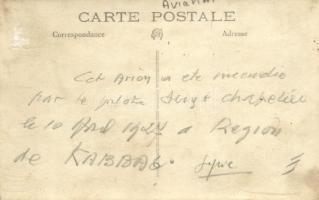 Aviation
CARTE POSTALE
Correspondance Adresse
Cet Avion a été incendié
par le pilote Serge Chapelier
le 10 1927 a Region
de KABBAB